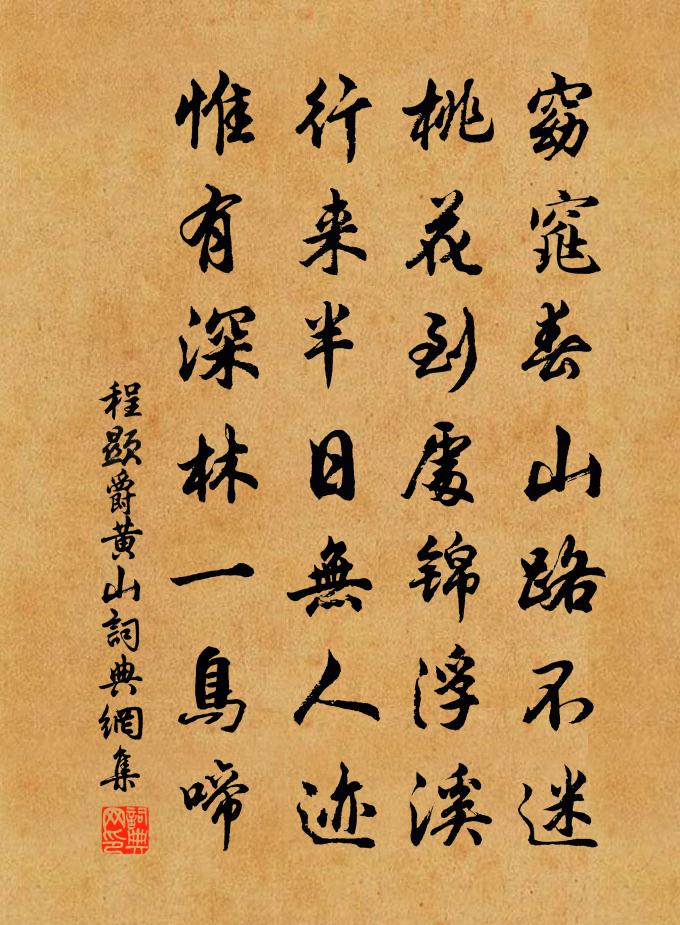 窈窕春山路不迷
桃花到處錦浮溪
行来半日無人迹
惟有深林一鳥啼
程顯爵黄山詞典網集
詞典网印